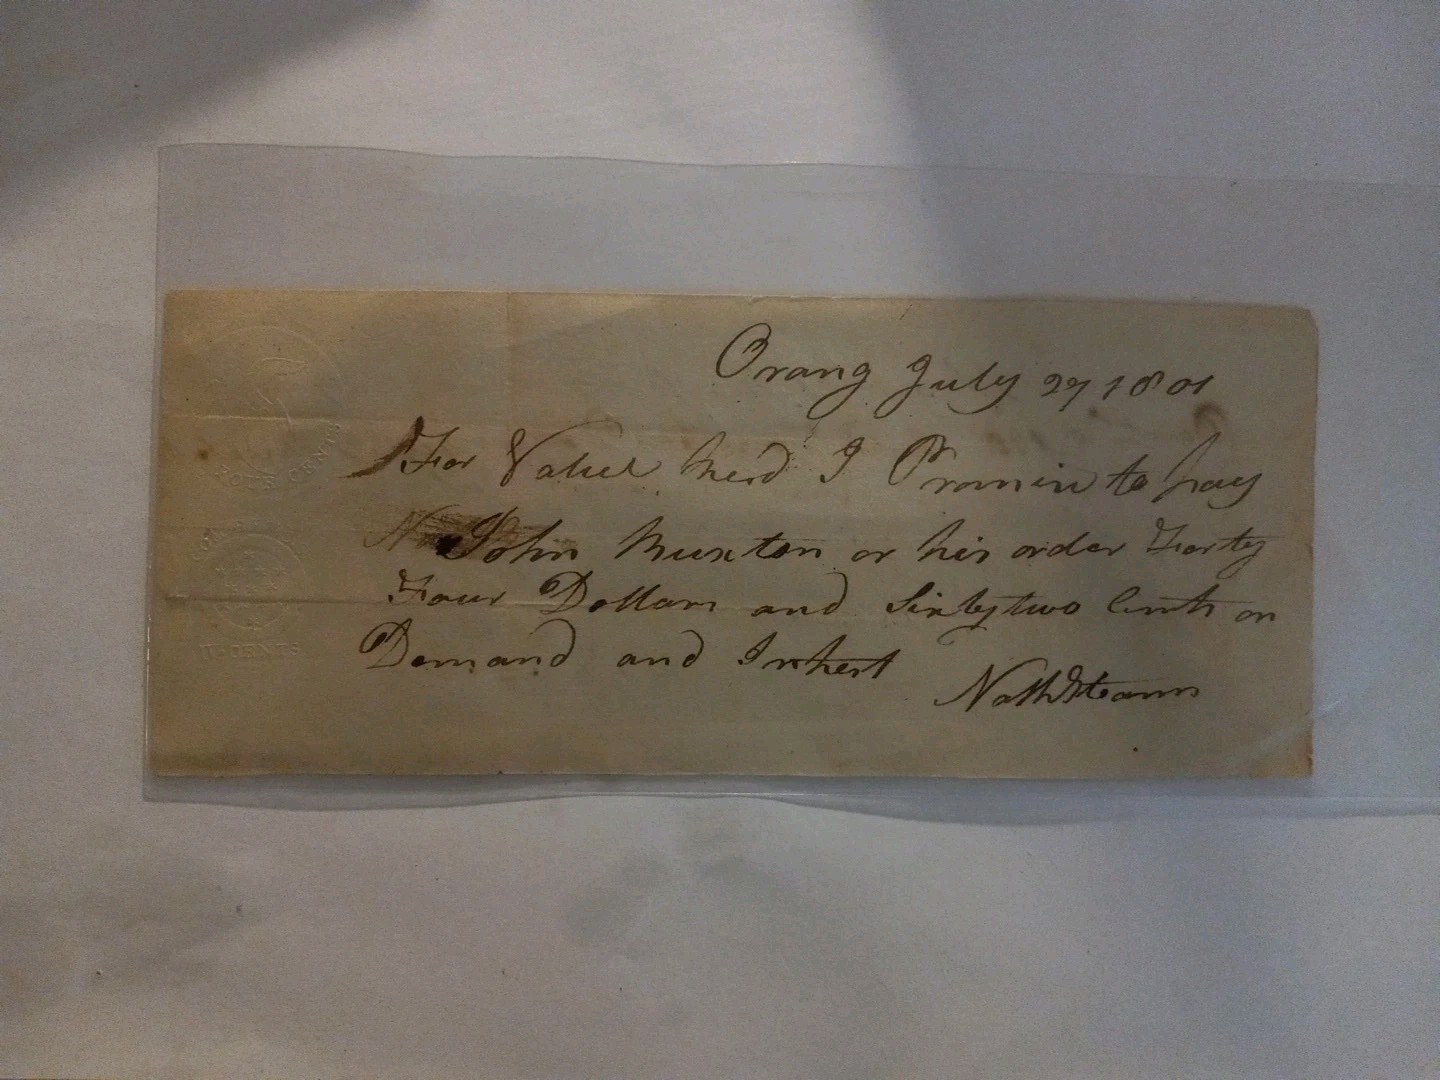 Orang July 27 1801
For Value Rec'd I Promise to pay
John Muxton or his order Forty
Four Dollars and Sixty two Cents on
Demand and Interest
Nath Stearns
FOUR CENTS
CENTS